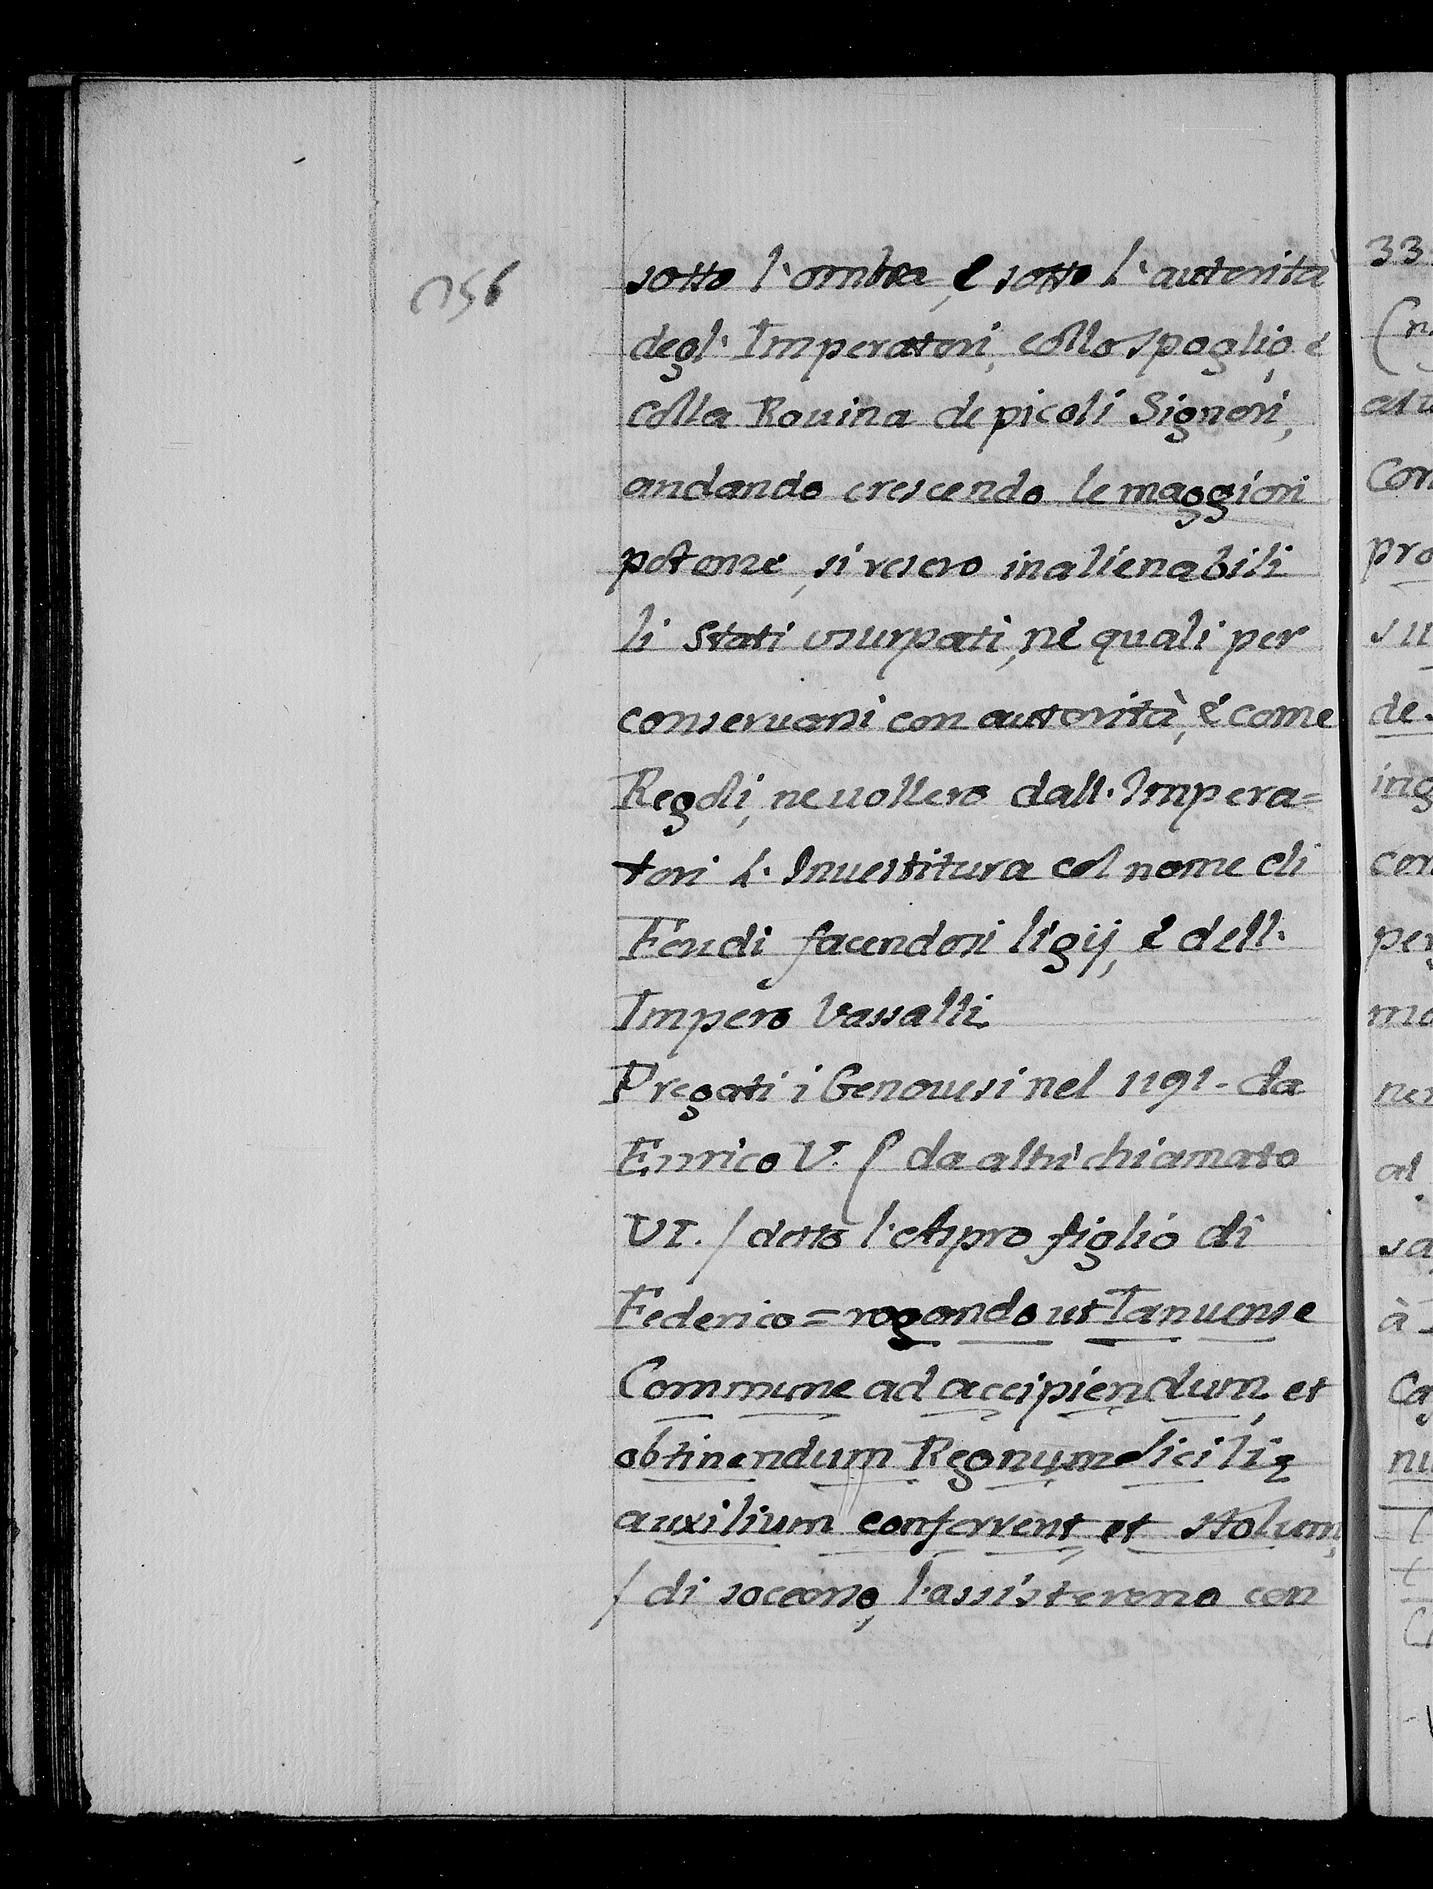 156
sotto l'ombra, é sotto l'autorità
degl' Imperatori, collo spoglio, é
colla Rouina de picoli Signori,
andando crescendo le maggiori
potenze, si resero inalienabili
li Stati usurpati, né quali per
conseruarsi con autorità, é come
Regoli, ne uollero dall' Impera=
tori l' Inuestitura col nome di
Feudi facendosi ligij, é dell'
Impero Vassalli
Pregati i Genouesi nel 1191 - da
Enrico V. ( da altri chiamato
VI. / detto l'Aspro figlio di
Federico = rogando ut Ianuense
Commune ad accipiendum, et
obtinendum Regnum Siciliæ
auxilium conferrent, et stolum,
/ di soccorso, l'assisterono con